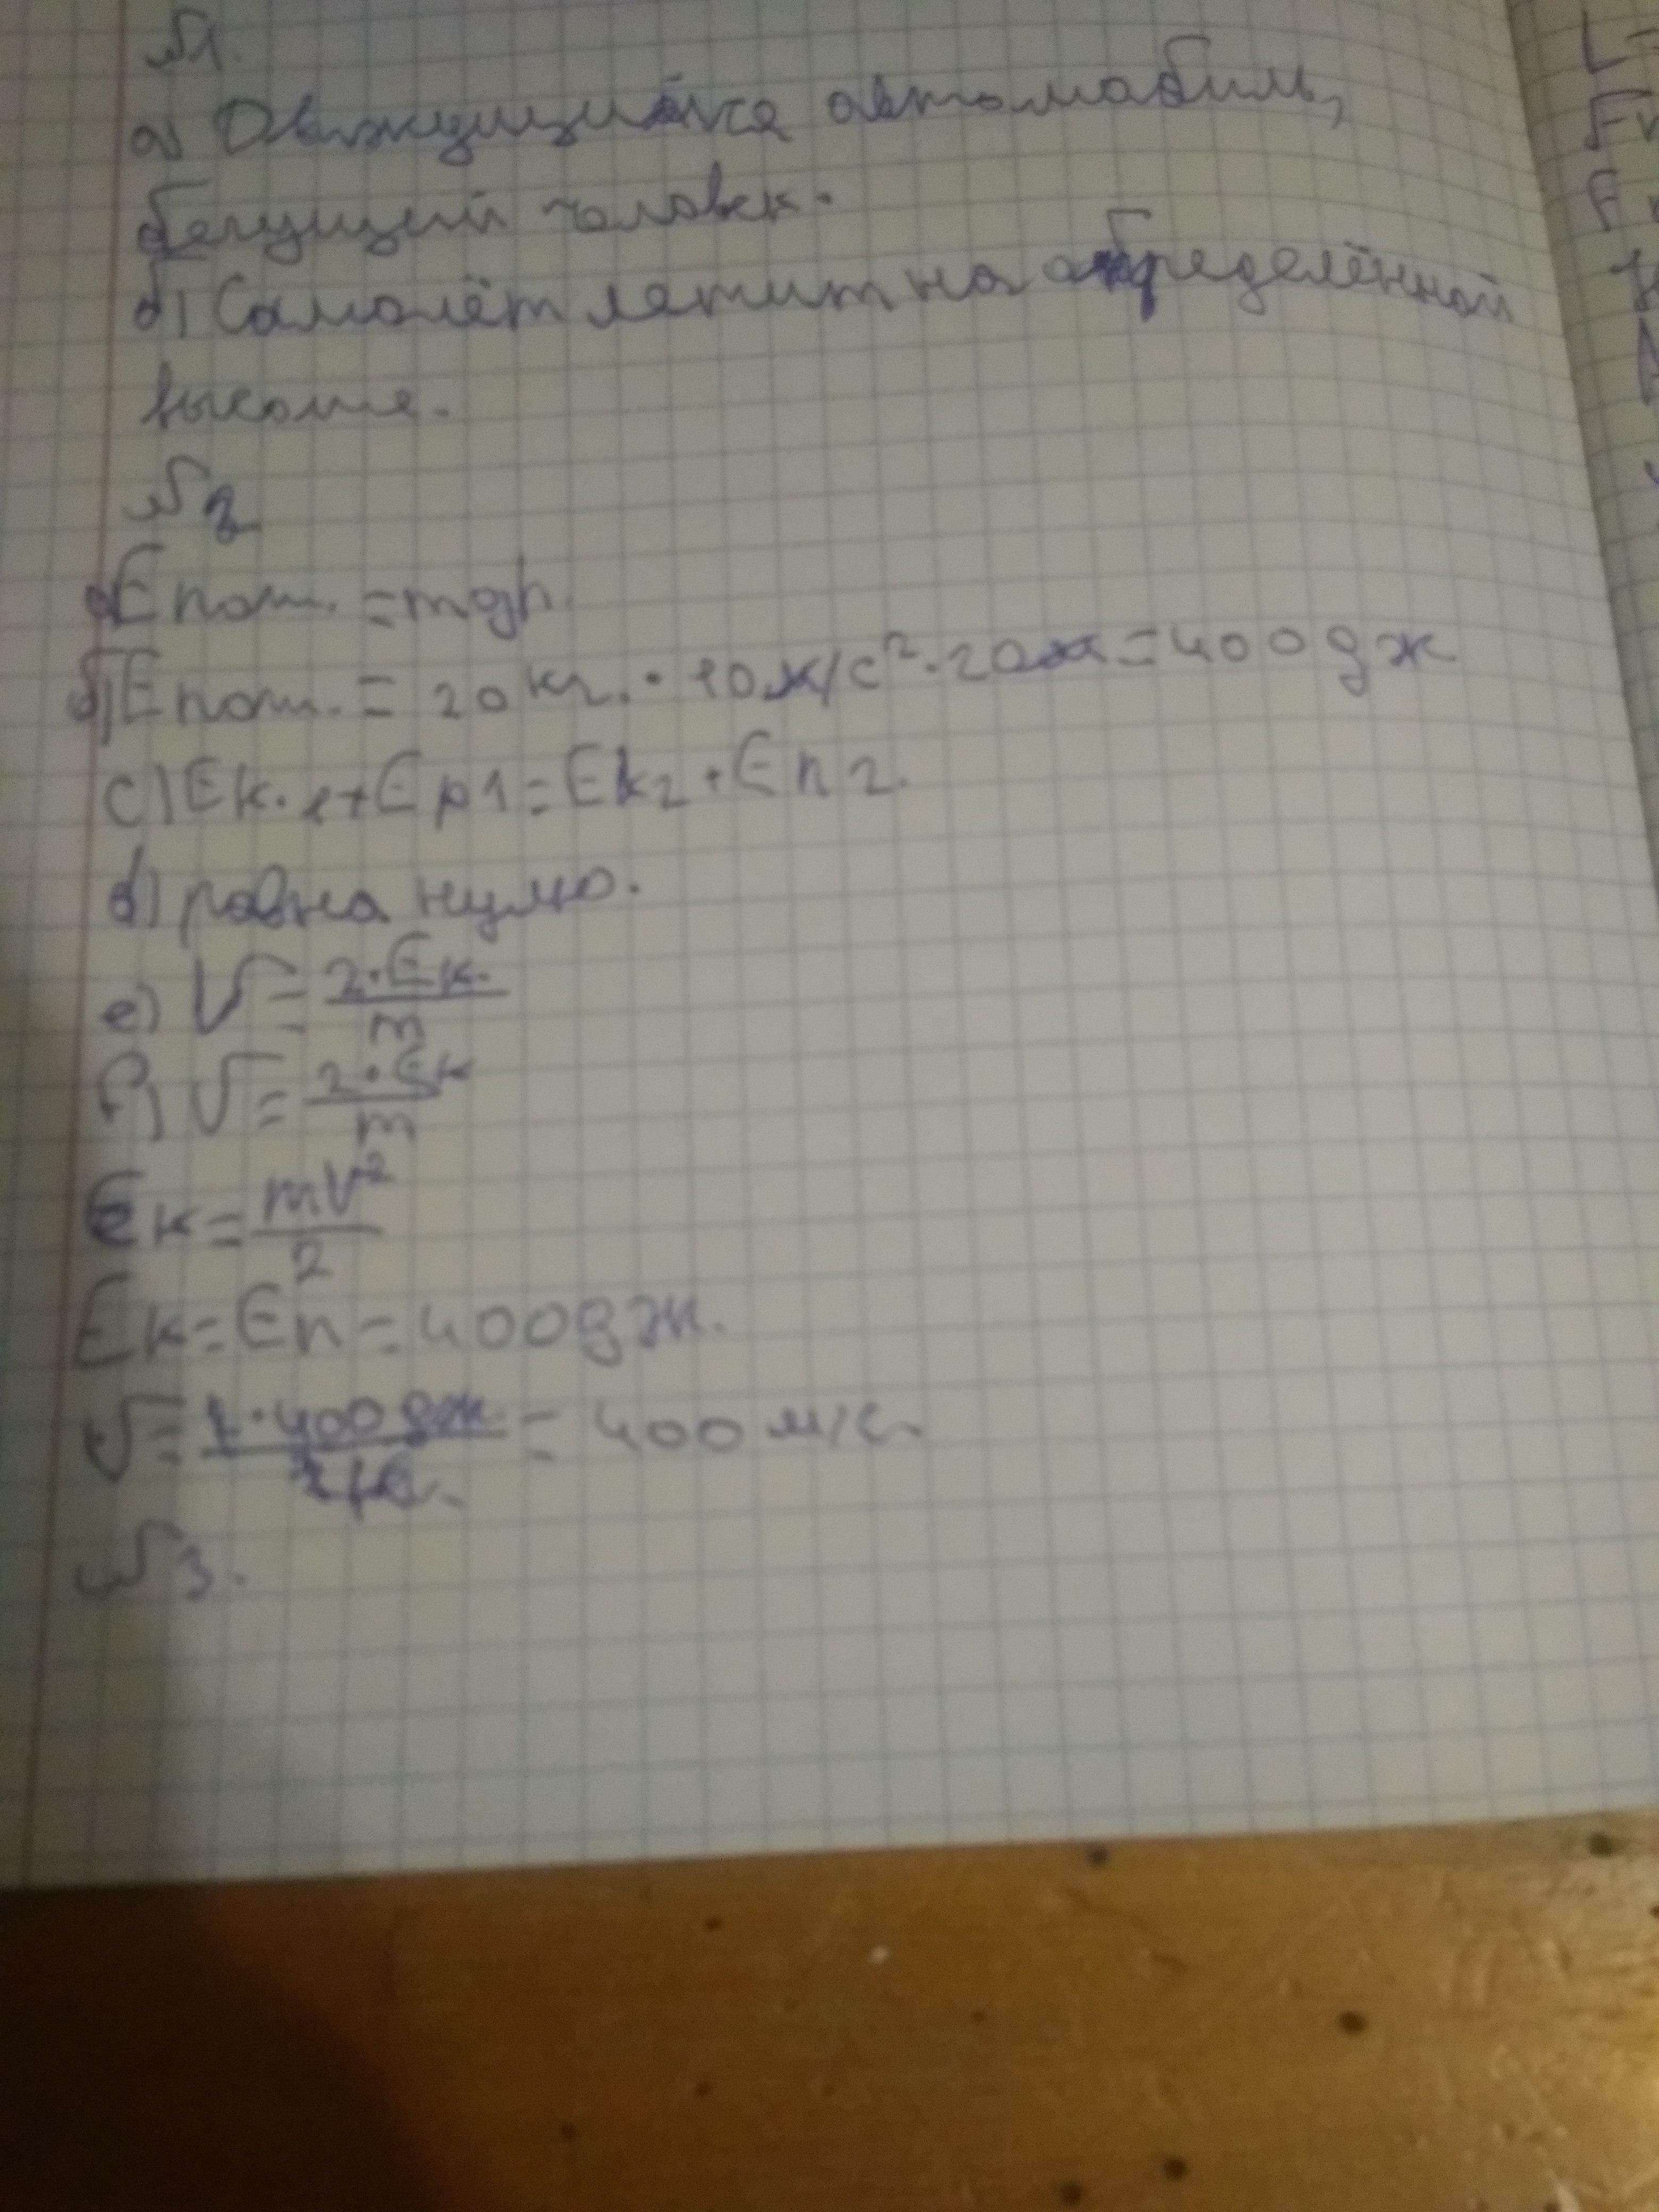 №1.
а) Движущийся автомобиль,
бегущий человек.
б) Самолёт летит на определённой
высоте.
№2
а) Eпот. = mgh.
б) Eпот. = 20 кг. · 10 м/с² · 20м = 400 дж
c) Eк.1 + Ep1 = Eк2 + Eп2.
d) равна нулю.
e) V = 2·Eк. / m
f) V = 2·Eк / m
Eк = mV² / 2
Eк = Eп = 400 дж.
V = 400 дж = 400 м/с.
№3.
L =